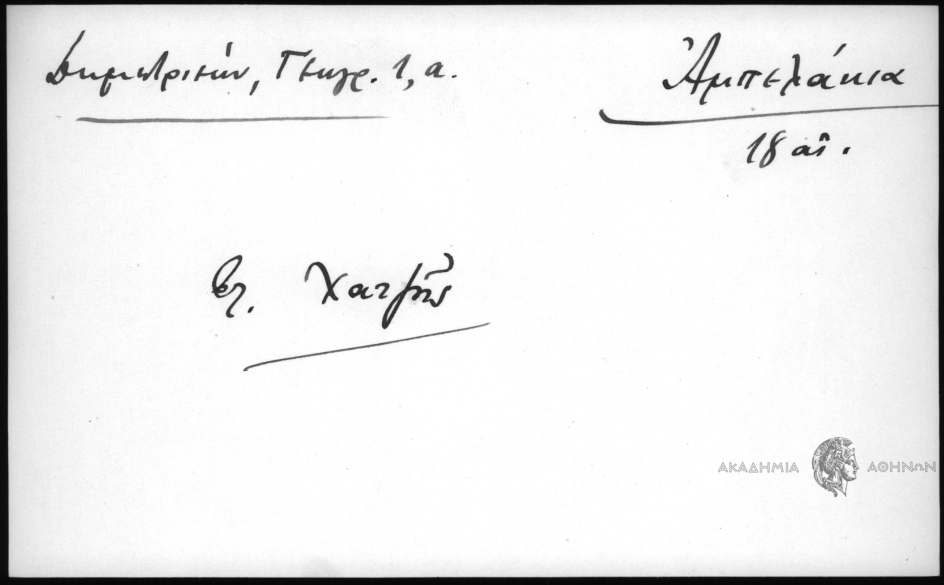 Δημητριέων, Γεωγρ. 1, α.
Ἀμπελάκια
18 αἰ.
βλ. Χατζῆς
ΑΚΑΔΗΜΙΑ ΑΘΗΝΩΝ